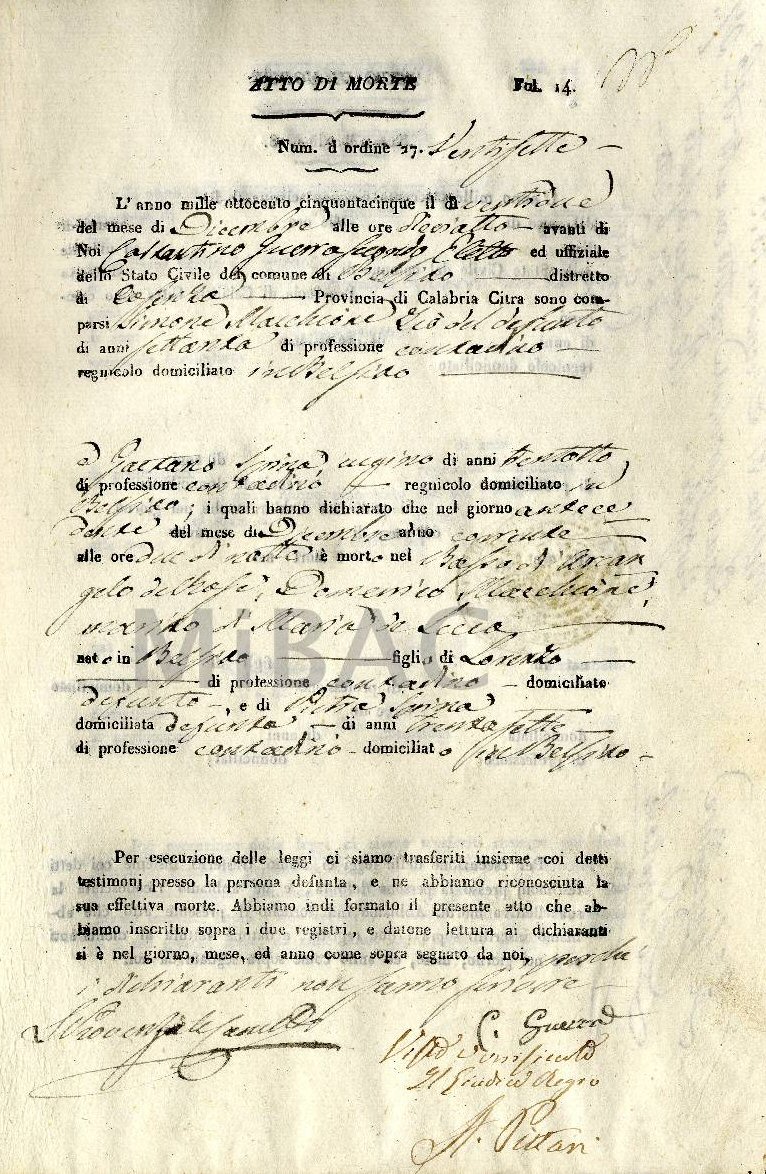 ATTO DI MORTE Fol. 14.
Num. d ordine 27. Ventisette
L' anno mille ottocento cinquantacinque il dì ventidue
del mese di Dicembre alle ore dieciotto avanti di
Noi Costantino Guerra secondo Eletto ed uffiziale
dello Stato Civile del comune di Belsito distretto
di Cosenza Provincia di Calabria Citra sono com-
parsi Simone Macchione Zio del defunto
di anni settanta di professione contadino
regnicolo domiciliato in Belsito
e Gaetano Spina, vicino di anni trentotto
di professione contadino regnicolo domiciliato in
Belsito; i quali hanno dichiarato che nel giorno antece
dente del mese di Dicembre anno corrente
alle ore due di notte è morto nel Basso di Arcan
gelo de Rose, Domenico Macchione,
marito di Maria de Cicco
nato in Belsito figlio di Lorenzo
di professione contadino domiciliato
defunto, e di Spina
domiciliata defunta di anni trentasette
di professione contadino domiciliato in Belsito
Per esecuzione delle leggi ci siamo trasferiti insieme coi detti
testimonj presso la persona defunta, e ne abbiamo riconosciuta la
sua effettiva morte. Abbiamo indi formato il presente atto che ab-
biamo inscritto sopra i due registri, e datone lettura ai dichiaranti
si è nel giorno, mese, ed anno come sopra segnato da noi, perche
i dichiaranti non sanno scrivere
C Guerra
Il Giudice Regio
MiBAC